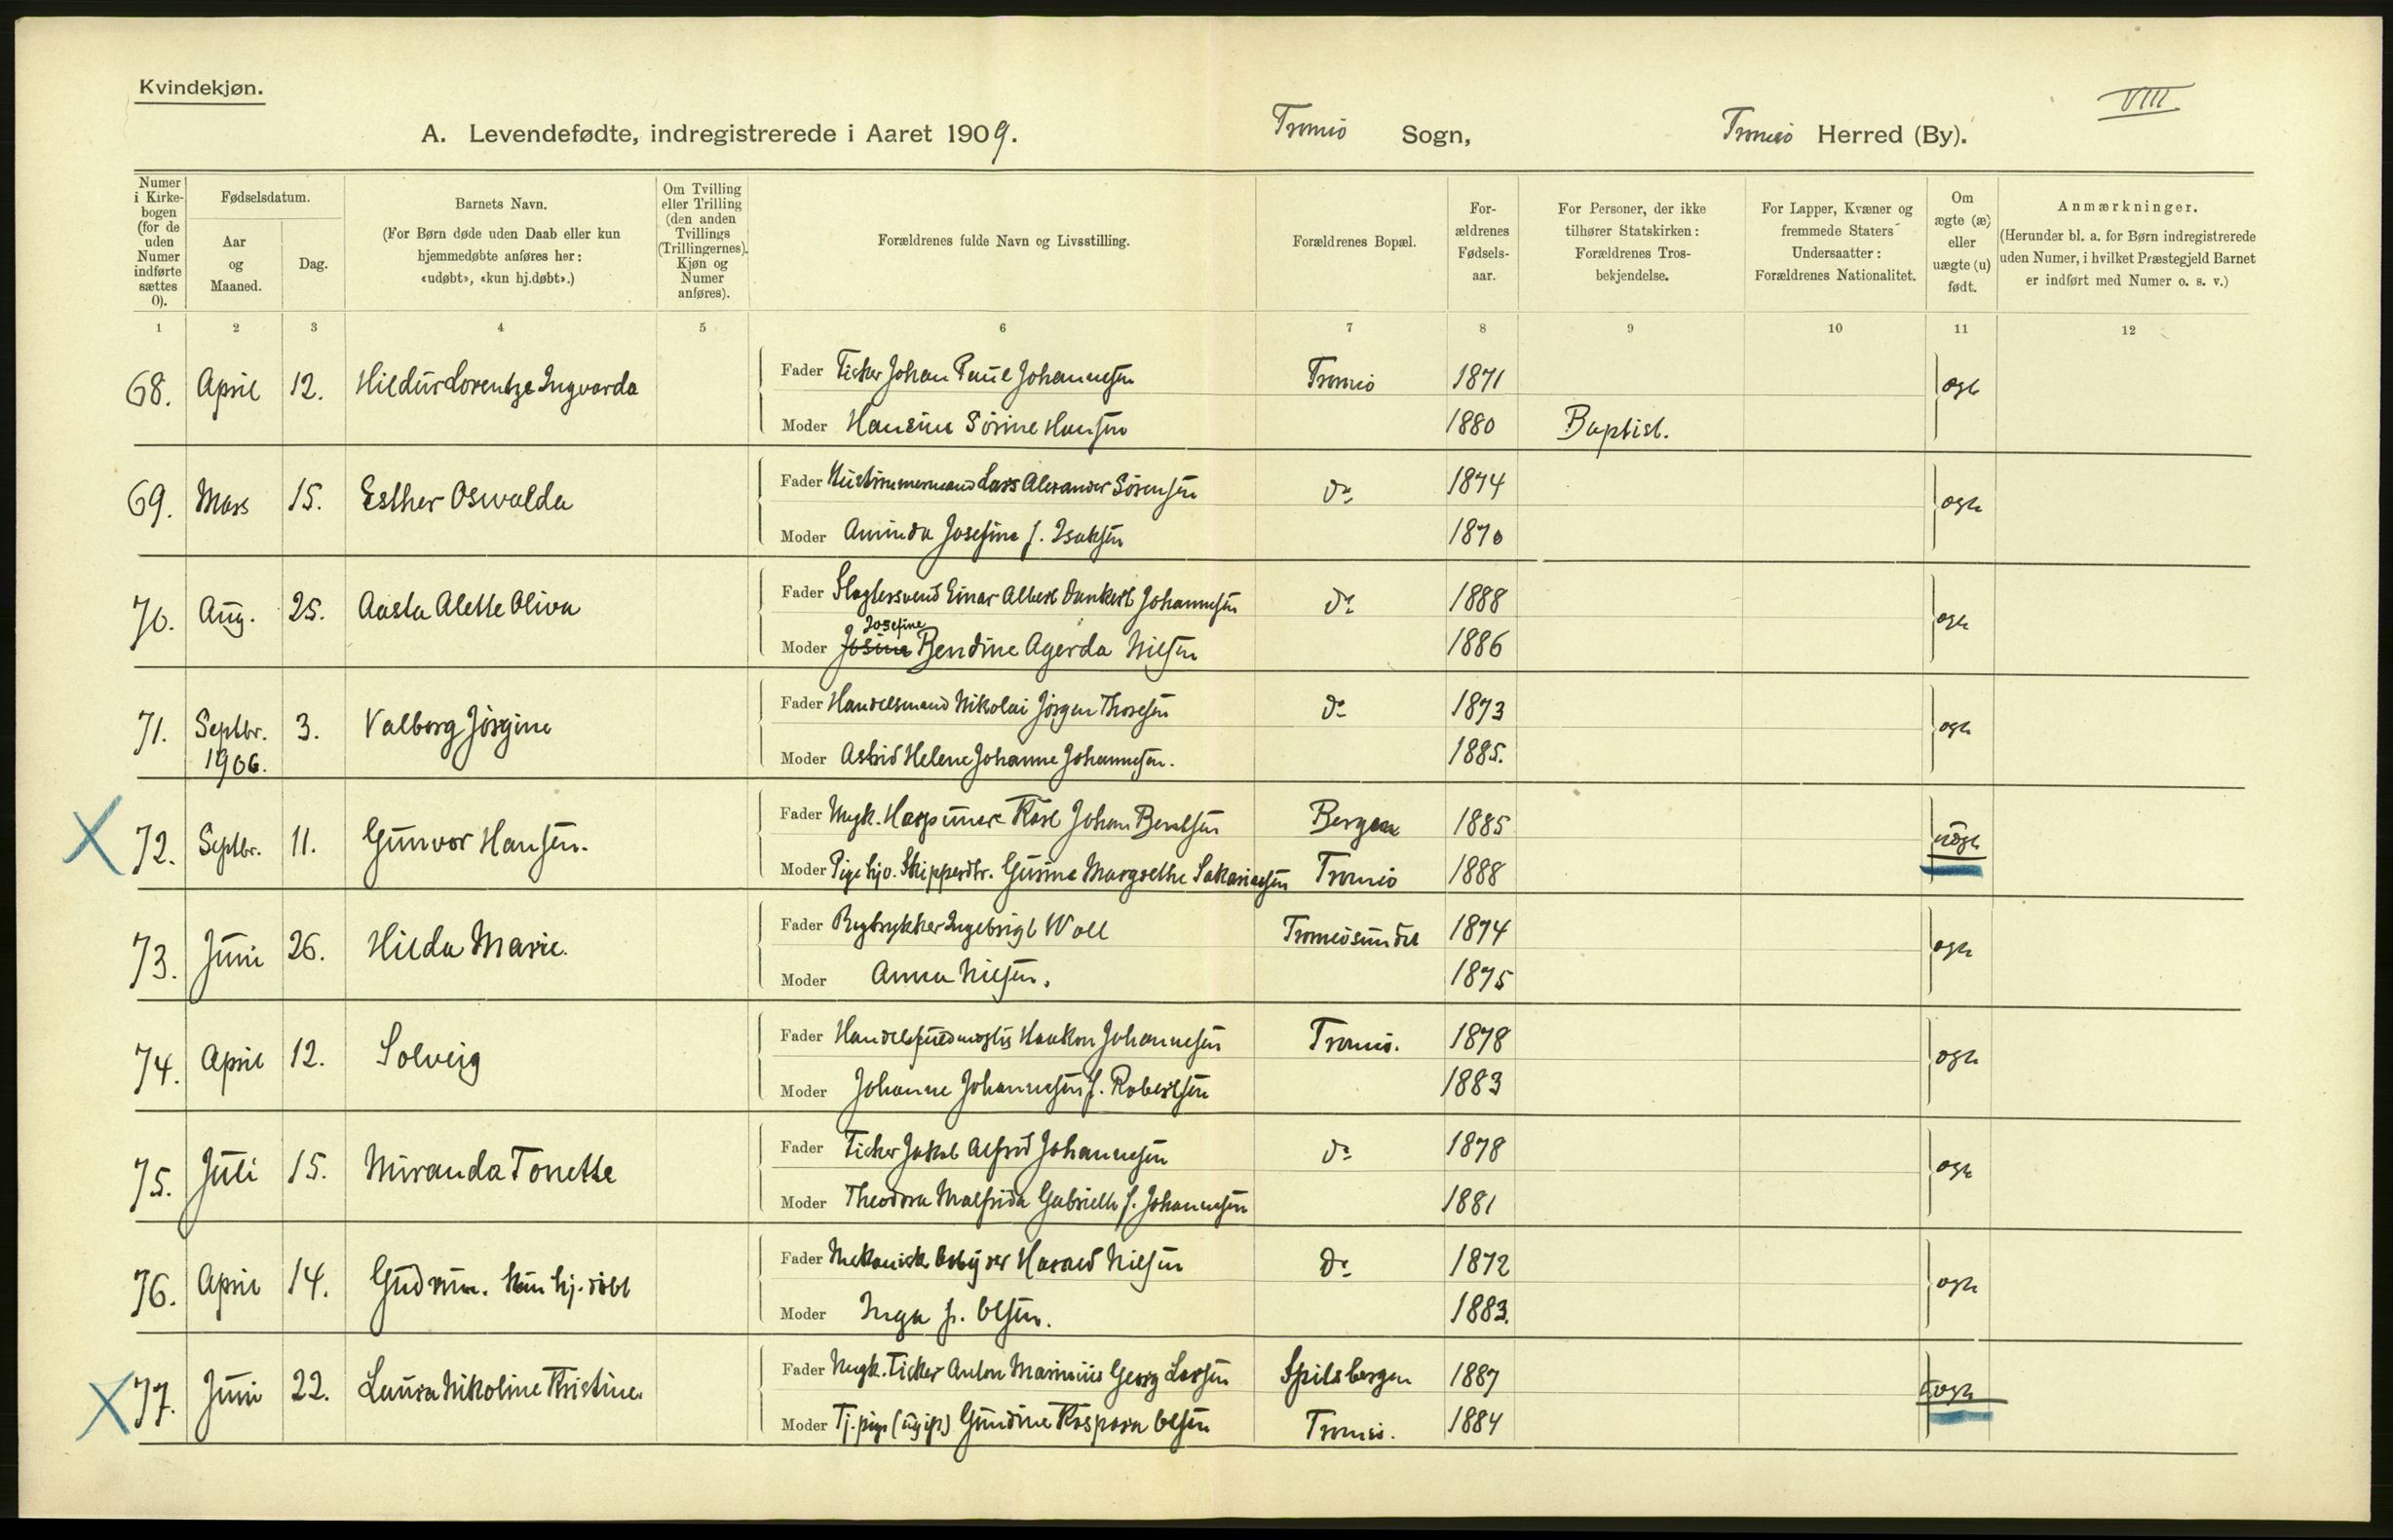 Kvindekjøn.
VIII
A. Levendefødte, indregistrerede i Aaret 1909. Tromsö Sogn, Tromsö Herred (By).
Numer i Kirkebogen (for de uden Numer indførte sættes 0).
Fødselsdatum.
Aar og Maaned.
Dag.
Barnets Navn.
(For Børn døde uden Daab eller kun hjemmedøbte anføres her: «udøbt», «kun hj.døbt».)
Om Tvilling eller Trilling (den anden Tvillings (Trillingernes) Kjøn og Numer anføres).
Forældrenes fulde Navn og Livsstilling.
Forældrenes Bopæl.
Forældrenes Fødselsaar.
For Personer, der ikke tilhører Statskirken: Forældrenes Trosbekjendelse.
For Lapper, Kvæner og fremmede Staters Undersaatter: Forældrenes Nationalitet.
Om ægte (æ) eller uægte (u) født.
Anmærkninger.
(Herunder bl. a. for Børn indregistrerede uden Numer, i hvilket Præstegjeld Barnet er indført med Numer o. s. v.)
1 2 3 4 5 6 7 8 9 10 11 12
68. April 12. Hildur Lorentze Ingvarda Fader Fisker Johan Paul Johannesen Tromsö 1871 ægte
Moder Hansine Sörine Hansen 1880 Baptist.
69. Mars 15. Esther Oswalda Fader Hustømmermand Lars Alexander Sörensen do 1874 ægte
Moder Aminda Josefine f. Isaksen 1870
70. Aug. 25. Aasta Alette Oliva Fader Slagtersvend Einar Albert Dankert Johannesen do 1888 ægte
Josefine
Moder Josine Bendine Agerda Nilsen 1886
71. Septbr. 3. Valborg Jörgine Fader Handelsmand Nikolai Jörgen Thoresen do 1873 ægte
1906. Moder Astrid Helene Johanne Johannesen. 1885.
72. Septbr. 11. Gunvor Hansen. Fader Ungk. Harpuner Karl Johan Berntsen Bergen 1885 uægte
Moder Pige hjv. Skipperdtr. Gusine Margrethe Sakariassen Tromsö 1888
73. Juni 26. Hilda Marie. Fader Bogtrykker Ingebrigt Woll Tromsösundet 1874 ægte
Moder Anna Nilsen. 1875
74. April 12. Solveig Fader Handelsfuldmægtig Haakon Johannesen Tromsö. 1878 ægte
Moder Johanne Johannesen f. Robertsen 1883
75. Juli 15. Miranda Tonette Fader Fisker Jakob Alfred Johannesen do 1878 ægte
Moder Theodora Malfrida Gabrielle f. Johannesen 1881
76. April 14. Gudrun. Kun hj. döbt Fader Mekanisk Harald Nilsen do 1872 ægte
Moder Inga f. Olsen. 1883.
77. Juni 22. Laura Nikoline Kristine. Fader Ungk. Fisker Anton Marinius Georg Larsen Spitsbergen 1887 uægte
Moder Tj. pige (ugift) Gundine Kaspara Olsen Tromsö. 1884